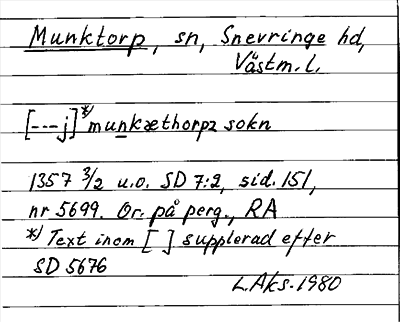 Munktorp, sn, Snevringe hd,
Västm. l.
[---j]*) munkæthorpz sokn
1357 3/2 u.o. SD 7:2, sid. 151,
nr 5699. Or. på perg., RA
*) Text inom [ ] supplerad efter
SD 5676
L. Aks. 1980